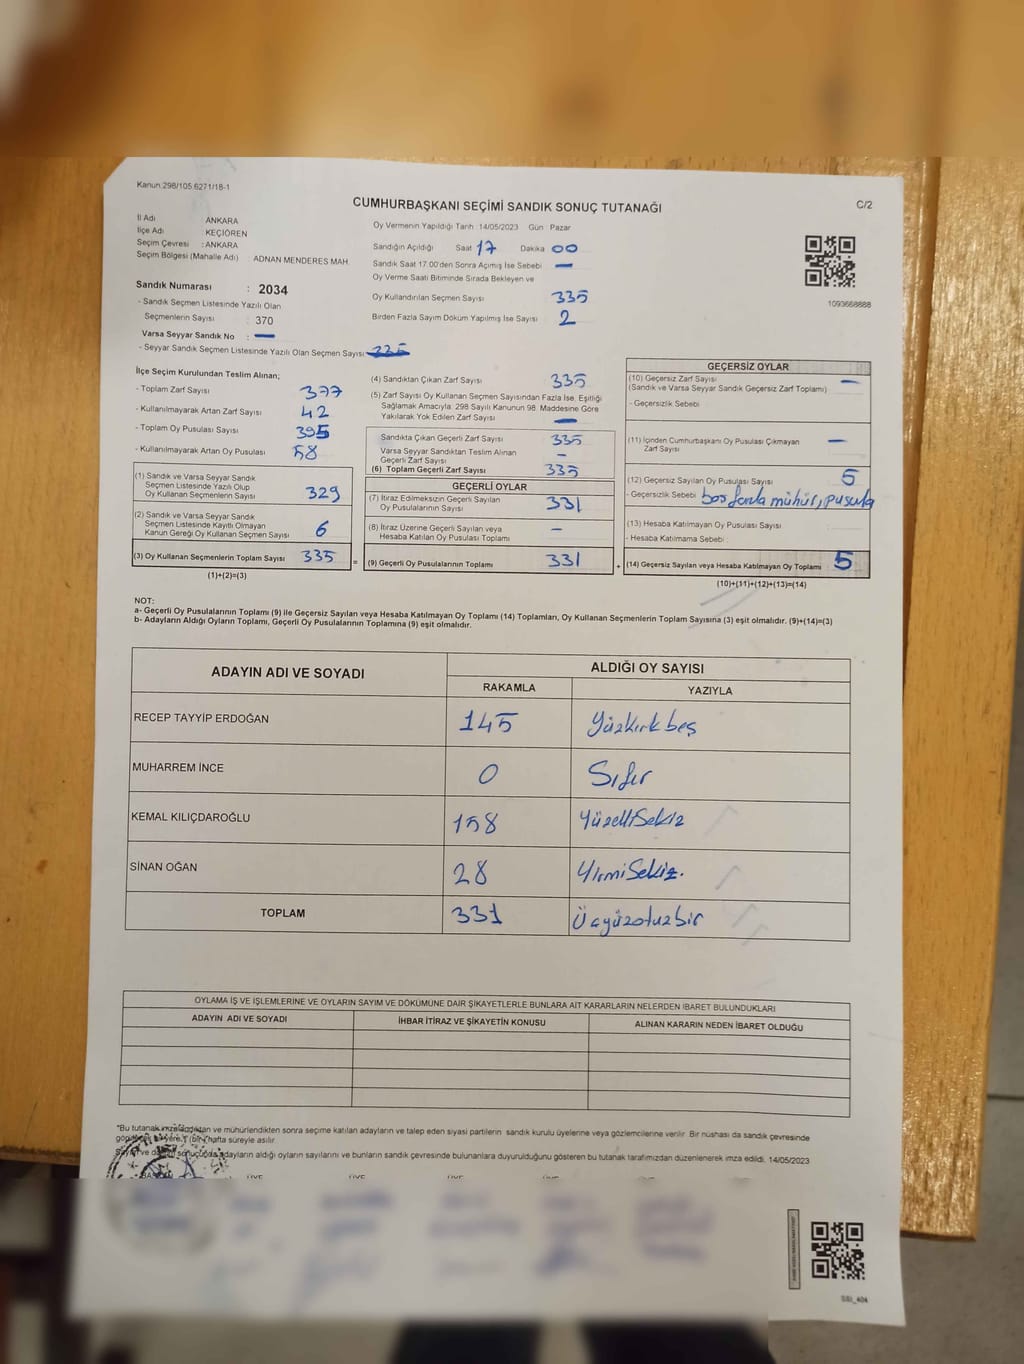 Kanun:298/105.6271/18-1
CUMHURBAŞKANI SEÇİMİ SANDIK SONUÇ TUTANAĞI
C/2
İl Adı ANKARA
İlçe Adı KEÇİÖREN
Seçim Çevresi : ANKARA
Seçim Bölgesi (Mahalle Adı) : ADNAN MENDERES MAH.
Sandık Numarası : 2034
- Sandık Seçmen Listesinde Yazılı Olan
Seçmenlerin Sayısı : 370
Varsa Seyyar Sandık No : —
- Seyyar Sandık Seçmen Listesinde Yazılı Olan Seçmen Sayısı
Oy Vermenin Yapıldığı Tarih 14/05/2023 Gün Pazar
Sandığın Açıldığı Saat 17 Dakika 00
Sandık Saat 17.00'den Sonra Açımış İse Sebebi —
Oy Verme Saati Bitiminde Sırada Bekleyen ve
Oy Kullandırılan Seçmen Sayısı 335
Birden Fazla Sayım Döküm Yapılmış İse Sayısı 2
1093668888
İlçe Seçim Kurulundan Teslim Alınan;
- Toplam Zarf Sayısı 377
- Kullanılmayarak Artan Zarf Sayısı 42
- Toplam Oy Pusulası Sayısı 395
- Kullanılmayarak Artan Oy Pusulası 58
(1) Sandık ve Varsa Seyyar Sandık
Seçmen Listesinde Yazılı Olup
Oy Kullanan Seçmenlerin Sayısı 329
(2) Sandık ve Varsa Seyyar Sandık
Seçmen Listesinde Kayıtlı Olmayan
Kanun Gereği Oy Kullanan Seçmen Sayısı 6
(3) Oy Kullanan Seçmenlerin Toplam Sayısı 335
(1)+(2)=(3)
(4) Sandıktan Çıkan Zarf Sayısı 335
(5) Zarf Sayısı Oy Kullanan Seçmen Sayısından Fazla İse, Eşitliği
Sağlamak Amacıyla: 298 Sayılı Kanunun 98. Maddesine Göre
Yakılarak Yok Edilen Zarf Sayısı —
Sandıkta Çıkan Geçerli Zarf Sayısı 335
Varsa Seyyar Sandıktan Teslim Alınan
Geçerli Zarf Sayısı —
(6) Toplam Geçerli Zarf Sayısı 335
GEÇERLİ OYLAR
(7) İtiraz Edilmeksizin Geçerli Sayılan
Oy Pusulalarının Sayısı 331
(8) İtiraz Üzerine Geçerli Sayılan veya
Hesaba Katılan Oy Pusulası Toplamı —
= (9) Geçerli Oy Pusulalarının Toplamı 331
GEÇERSİZ OYLAR
(10) Geçersiz Zarf Sayısı —
(Sandık ve Varsa Seyyar Sandık Geçersiz Zarf Toplamı)
- Geçersizlik Sebebi
(11) İçinden Cumhurbaşkanı Oy Pusulası Çıkmayan
Zarf Sayısı —
(12) Geçersiz Sayılan Oy Pusulası Sayısı 5
- Geçersizlik Sebebi mühür, pusula
(13) Hesaba Katılmayan Oy Pusulası Sayısı
- Hesaba Katılmama Sebebi :
+ (14) Geçersiz Sayılan veya Hesaba Katılmayan Oy Toplamı 5
(10)+(11)+(12)+(13)=(14)
NOT:
a- Geçerli Oy Pusulalarının Toplamı (9) ile Geçersiz Sayılan veya Hesaba Katılmayan Oy Toplamı (14) Toplamları, Oy Kullanan Seçmenlerin Toplam Sayısına (3) eşit olmalıdır. (9)+(14)=(3)
b- Adayların Aldığı Oyların Toplamı, Geçerli Oy Pusulalarının Toplamına (9) eşit olmalıdır.
ADAYIN ADI VE SOYADI ALDIĞI OY SAYISI
RAKAMLA YAZIYLA
RECEP TAYYİP ERDOĞAN 145 Yüzkırk beş
MUHARREM İNCE 0 Sıfır
KEMAL KILIÇDAROĞLU 158 YüzelliSekiz
SİNAN OĞAN 28 YirmiSekiz.
TOPLAM 331 Üçyüzotuzbir
OYLAMA İŞ VE İŞLEMLERİNE VE OYLARIN SAYIM VE DÖKÜMÜNE DAİR ŞİKAYETLERLE BUNLARA AİT KARARLARIN NELERDEN İBARET BULUNDUKLARI
ADAYIN ADI VE SOYADI İHBAR İTİRAZ VE ŞİKAYETİN KONUSU ALINAN KARARIN NEDEN İBARET OLDUĞU
*Bu tutanak imzalandıktan ve mühürlendikten sonra seçime katılan adayların ve talep eden siyasi partilerin sandık kurulu üyelerine veya gözlemcilerine verilir. Bir nüshası da sandık çevresinde
(bir) hafta süreyle asılır.
adayların aldığı oyların sayılarını ve bunların sandık çevresinde bulunanlara duyurulduğunu gösteren bu tutanak tarafımızdan düzenlenerek imza edildi. 14/05/2023